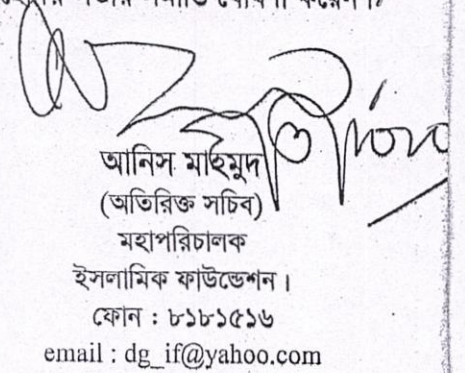 সভার সমাপ্তি ঘোষণা করেন।
আনিস মাহমুদ
(অতিরিক্ত সচিব)
মহাপরিচালক
ইসলামিক ফাউন্ডেশন।
ফোন : ৮১৮১৫১৬
email : dg_if@yahoo.com